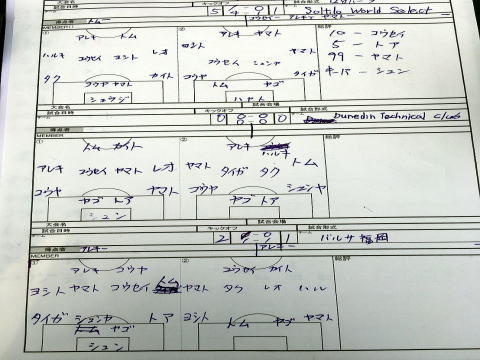 5 4-0 1 Soltilo World Select
得点者 トムー コウセイ アレキ ヤマト
MEMBER 総評
① アレキ トム ② アレキ ヤマト 10 - コウセイ
ヨシト ヤマト 5 - トア
ハルキ コウセイ ヨシト レオ コウセイ シュンヤ 99 - ヤマト
タク カイト コウヤ タイガ キーパー シュン
コウヤ ヤマト トム ヤゴ
シュウジ ハヤト
大会名
試合日時 キックオフ 試合会場 試合形式
0 0-0 0 Dunedin Technical club
0-0
得点者
MEMBER 総評
① トム カイト ② アレキ ハルキ トム
アレキ コウセイ ヤマト レオ ヤマト タイガ タク
コウヤ ヤマト コウヤ シュンヤ
ヤゴ トア ヤゴ トア
シュン
大会名
試合日時 キックオフ 試合会場 試合形式
2 -0 1 バルサ福岡
1-1
得点者 アレキー アレキー
MEMBER 総評
① アレキ コウヤ ② コウセイ カイト
ヨシト ヤマト コウセイ トム ヤマト タク レオ ハル
タイガ シュンヤ トア ヨシト トム ヤゴ ヤマト
ヤゴ
シュン